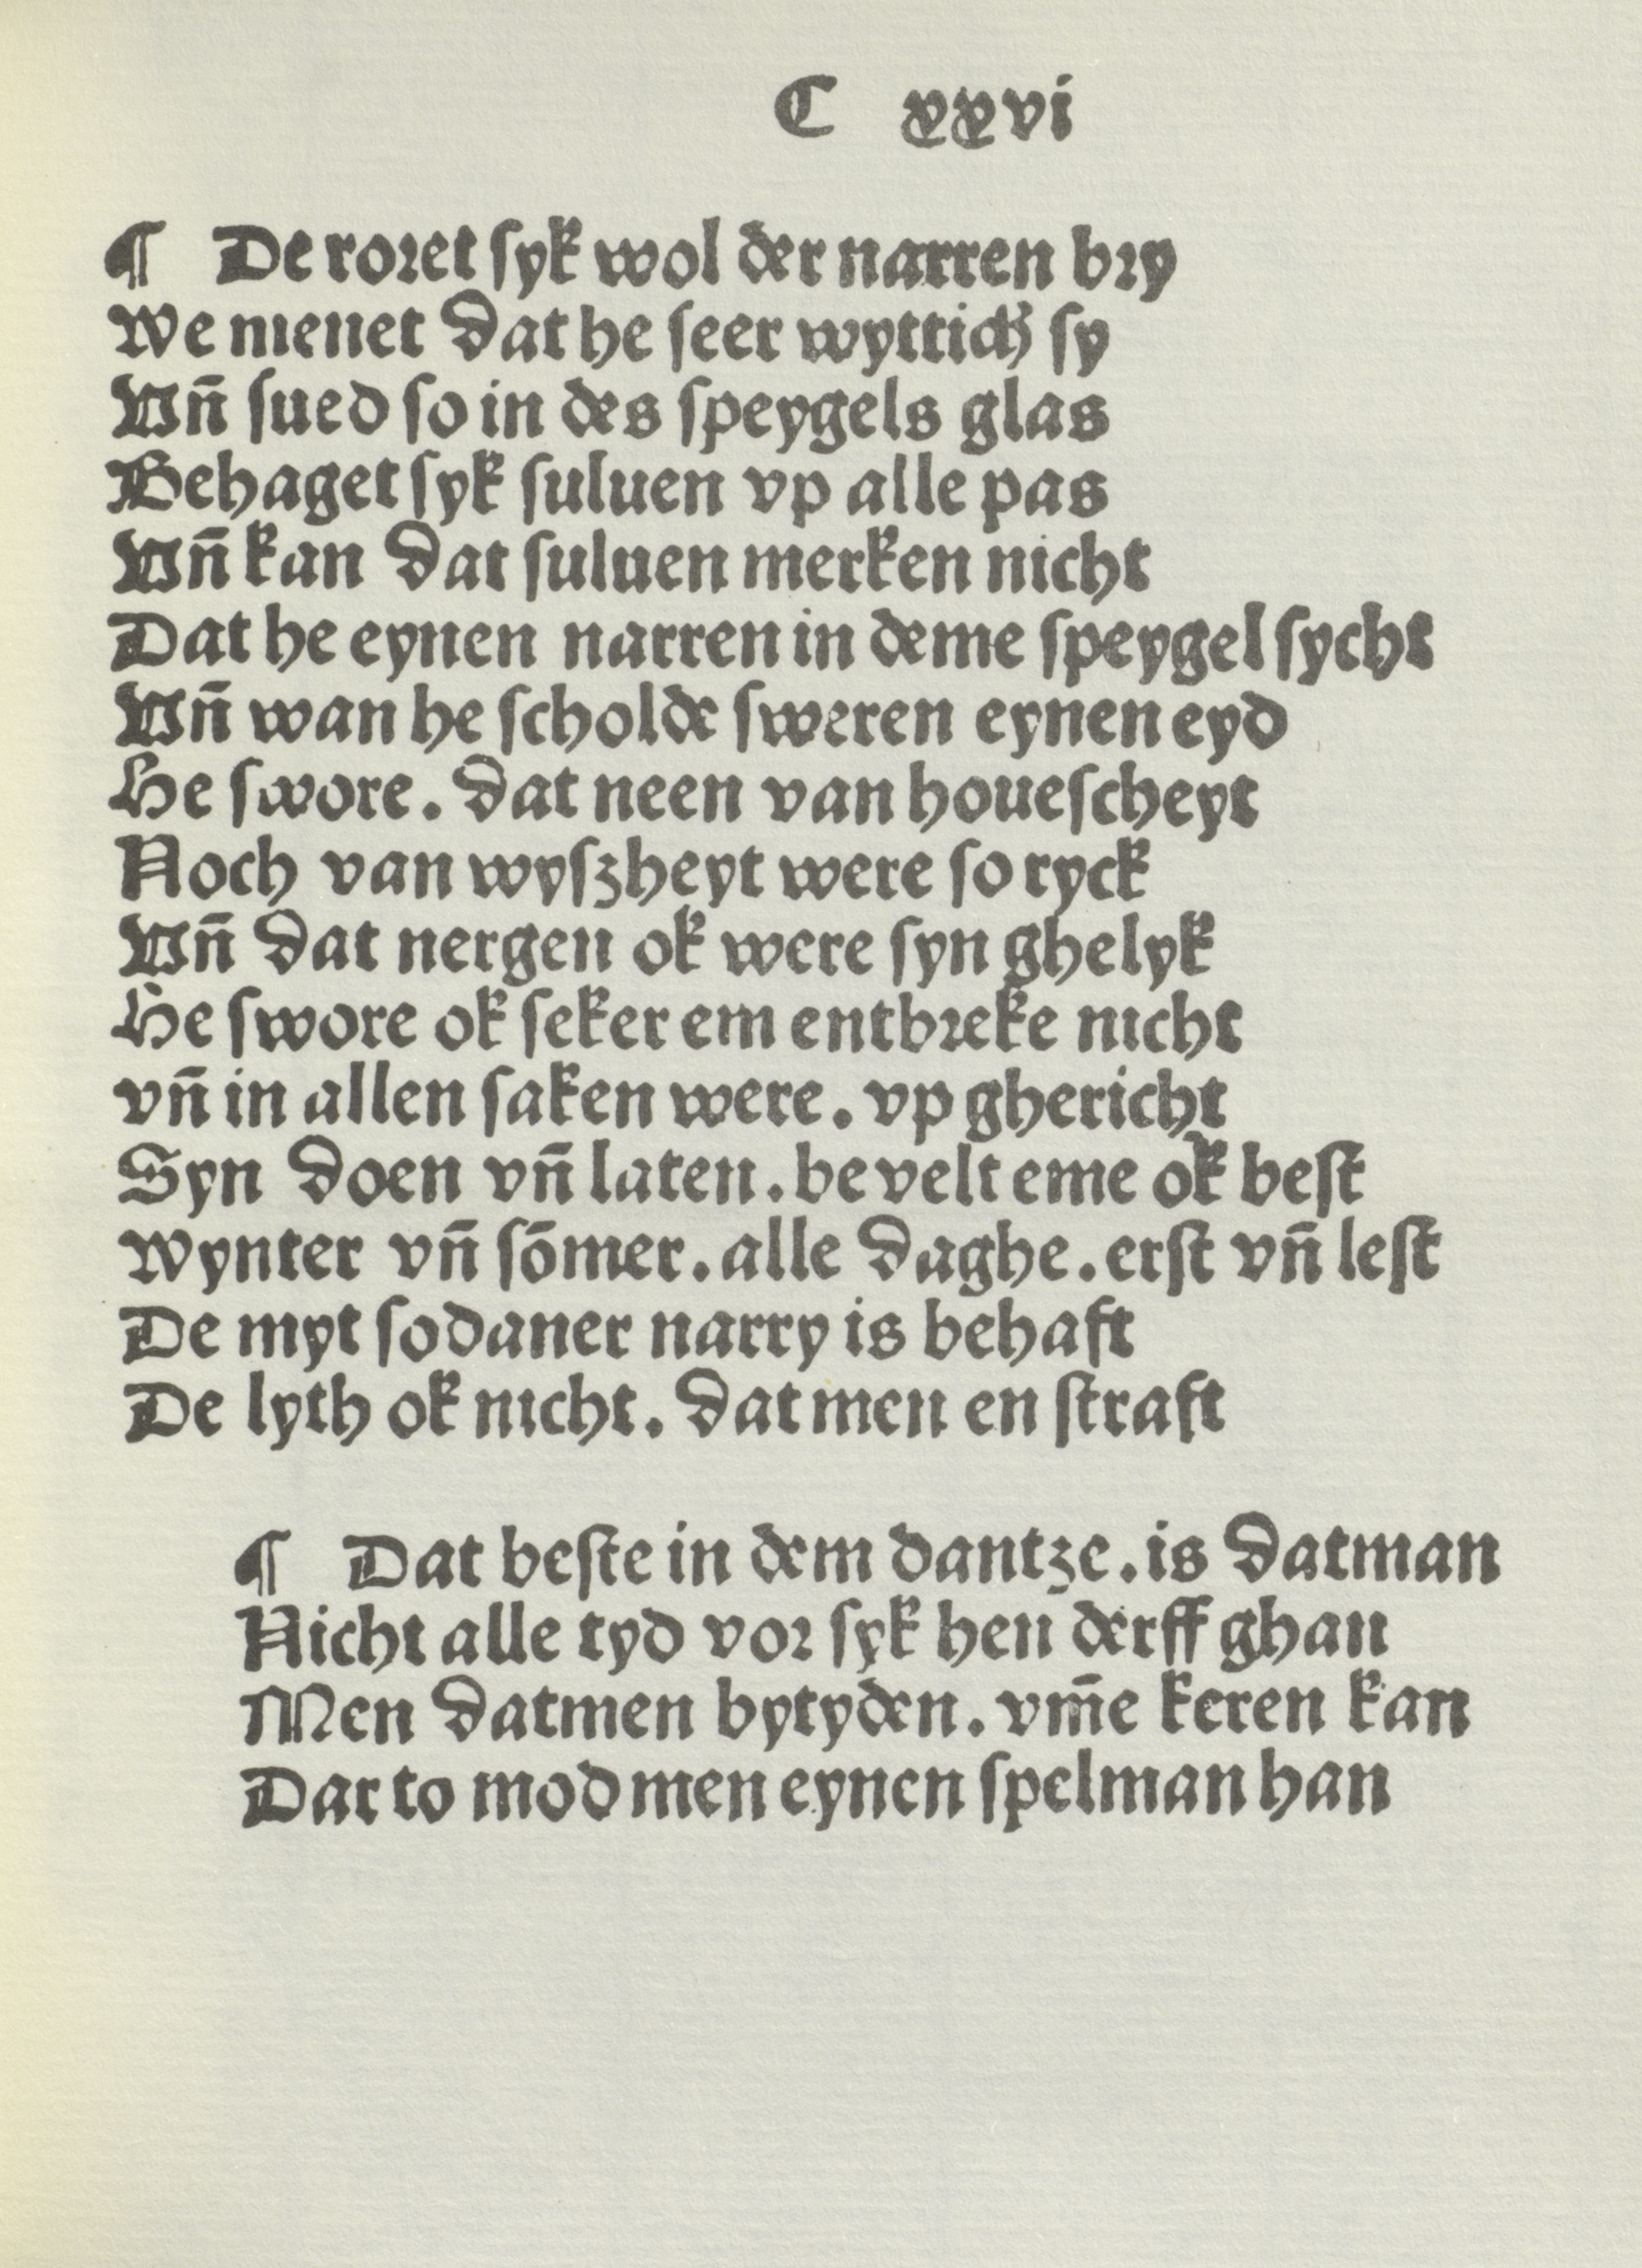 C xxvi
¶ De roꝛet ſyk wol der narren bꝛy
We menet dat he ſeer wyttich ſy
Vn̄ ſued ſo in des ſpeygels glas
Behaget ſyk ſuluen vp alle pas
Vn̄ kan dat ſuluen merken nicht
Dat he eynen narren in deme ſpeygel ſycht
Vn̄ wan he ſcholde ſweren eynen eyd
He ſwore. dat neen van houeſcheyt
Noch van wyſzheyt were ſo ryck
Vn̄ dat nergen ok were ſyn ghelyk
He ſwore ok ſeker em entbꝛeke nicht
vn̄ in allen ſaken were. vp ghericht
Syn doen vn̄ laten. bevelt eme ok beſt
Wynter vn̄ ſōmer. alle daghe. erſt vn̄ leſt
De myt ſodaner narry is behaft
De lyth ok nicht. dat men en ſtraft
¶ Dat beſte in dem dantze. is datman
Nicht alle tyd voꝛ ſyk hen derff ghan
Men datmen bytyden. vm̄e keren kan
Dar to mod men eynen ſpelman han